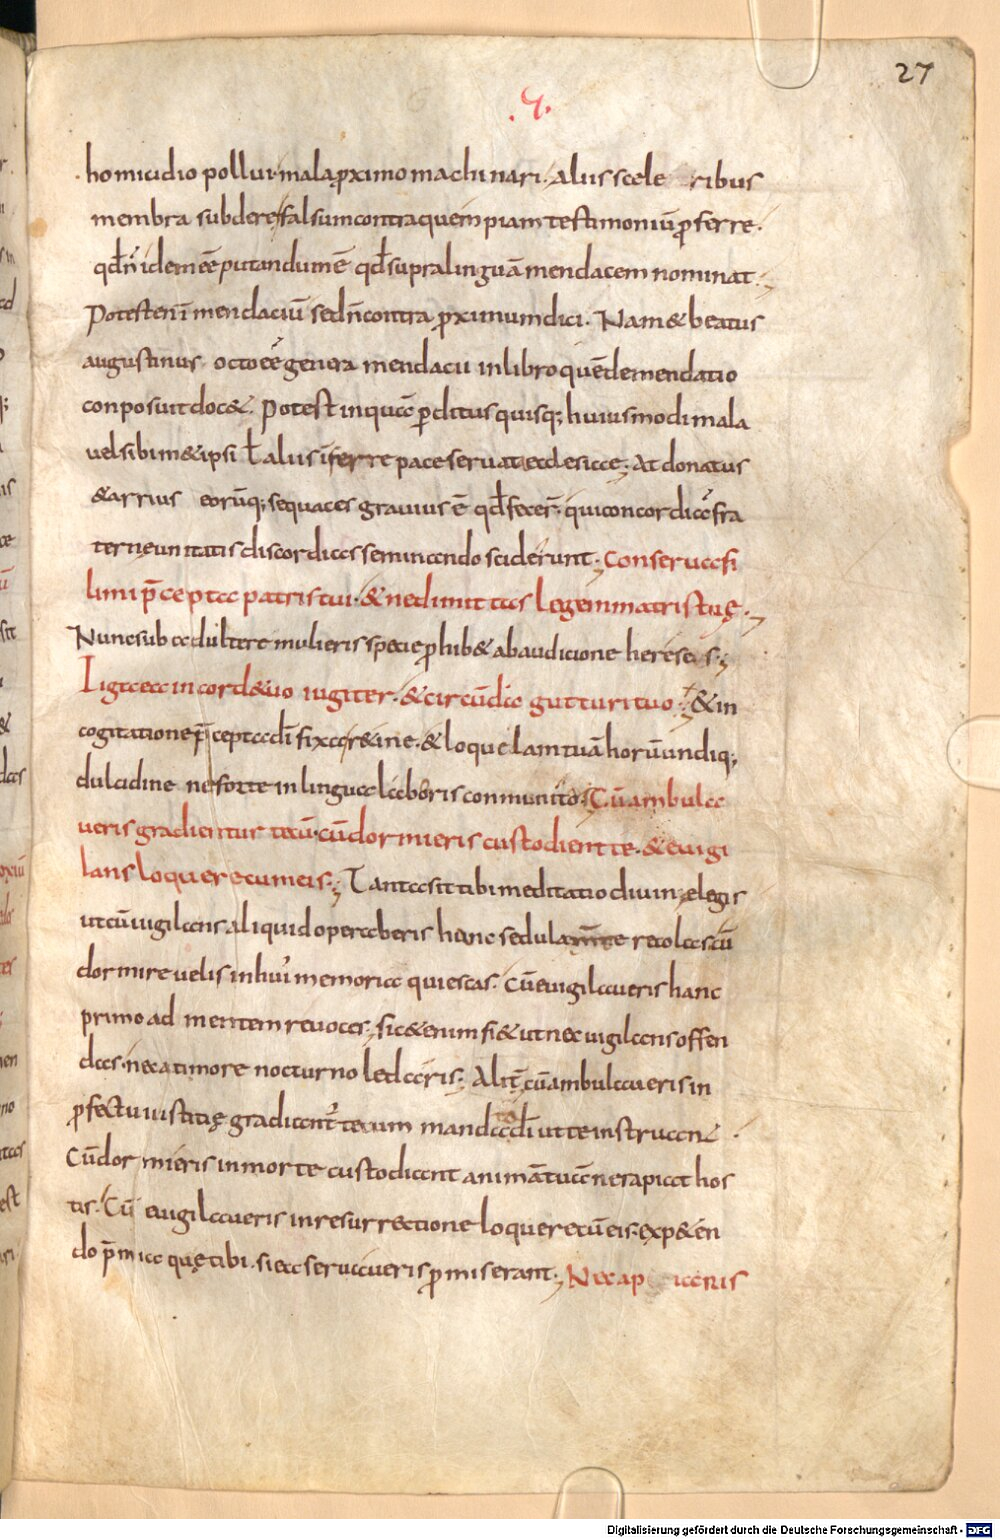 27
.q.
homicidio pollui. mala pximo machinari. aliis scele ribus
membra subdere. falsum contra quempiam testimoniū pferre.
qđ n̄ idem eē putandum ē qđ supra linguā mendacem nominat.
Potest enī mendaciū sed n̄ contra pximum dici. Nam & beatus
augustinus octo eē genera mendacii in libro quē de mendatio
conposuit doc&. Potest inquā pditus quisq; huiusmodi mala
vel sibim&ipsi ł aliis īferre pace servata ecclesiae. At donatus
& arrius eorūq; sequaces gravius ē qđ fecer̄. qui concordiā fra
ternę unitatis discordias seminando sciderunt. Conserva fi
li mi p̄cepta patris tui. & ne dimittas legem matris tuę.
Nunc sub adultere mulieris specie phib& ab audicione hereseos.
Liga ea in corde tuo iugiter. & circūda gutturi tuo. & in
cogitatione p̄cepta dī fixa r&ine. & loquelam tuā horū undiq;
dulcidine ne forte in lingua laboris communito. Cū ambula
veris gradientur tecū. cū dormieris custodient te. & evigi
lans loquere cum eis. Tanta sit tibi meditatio divinę legis
ut cū vigilans aliquid operaberis hanc sedula mente recolas cū
dormire velis in huī memoria quiescas. Cū evigilaveris hanc
primo ad mentem revoces. sic&enim fi& ut nec vigilans offen
das. nec a timore nocturno ledaris. Alit̄ cū ambulaveris in
pfectu iustitię gradiant̄ tecum mandata dī ut te instruant.
Cū dormieris in morte custodiant animā tuā ne rapiat hos
tis. Cū evigilaveris in resurrectione loquere cū eis. exp&en
do p̄mia quę tibi. si ea servaveris pmiserant. Nec ap iaris
Digitalisierung gefördert durch die Deutsche Forschungsgemeinschaft - DFG